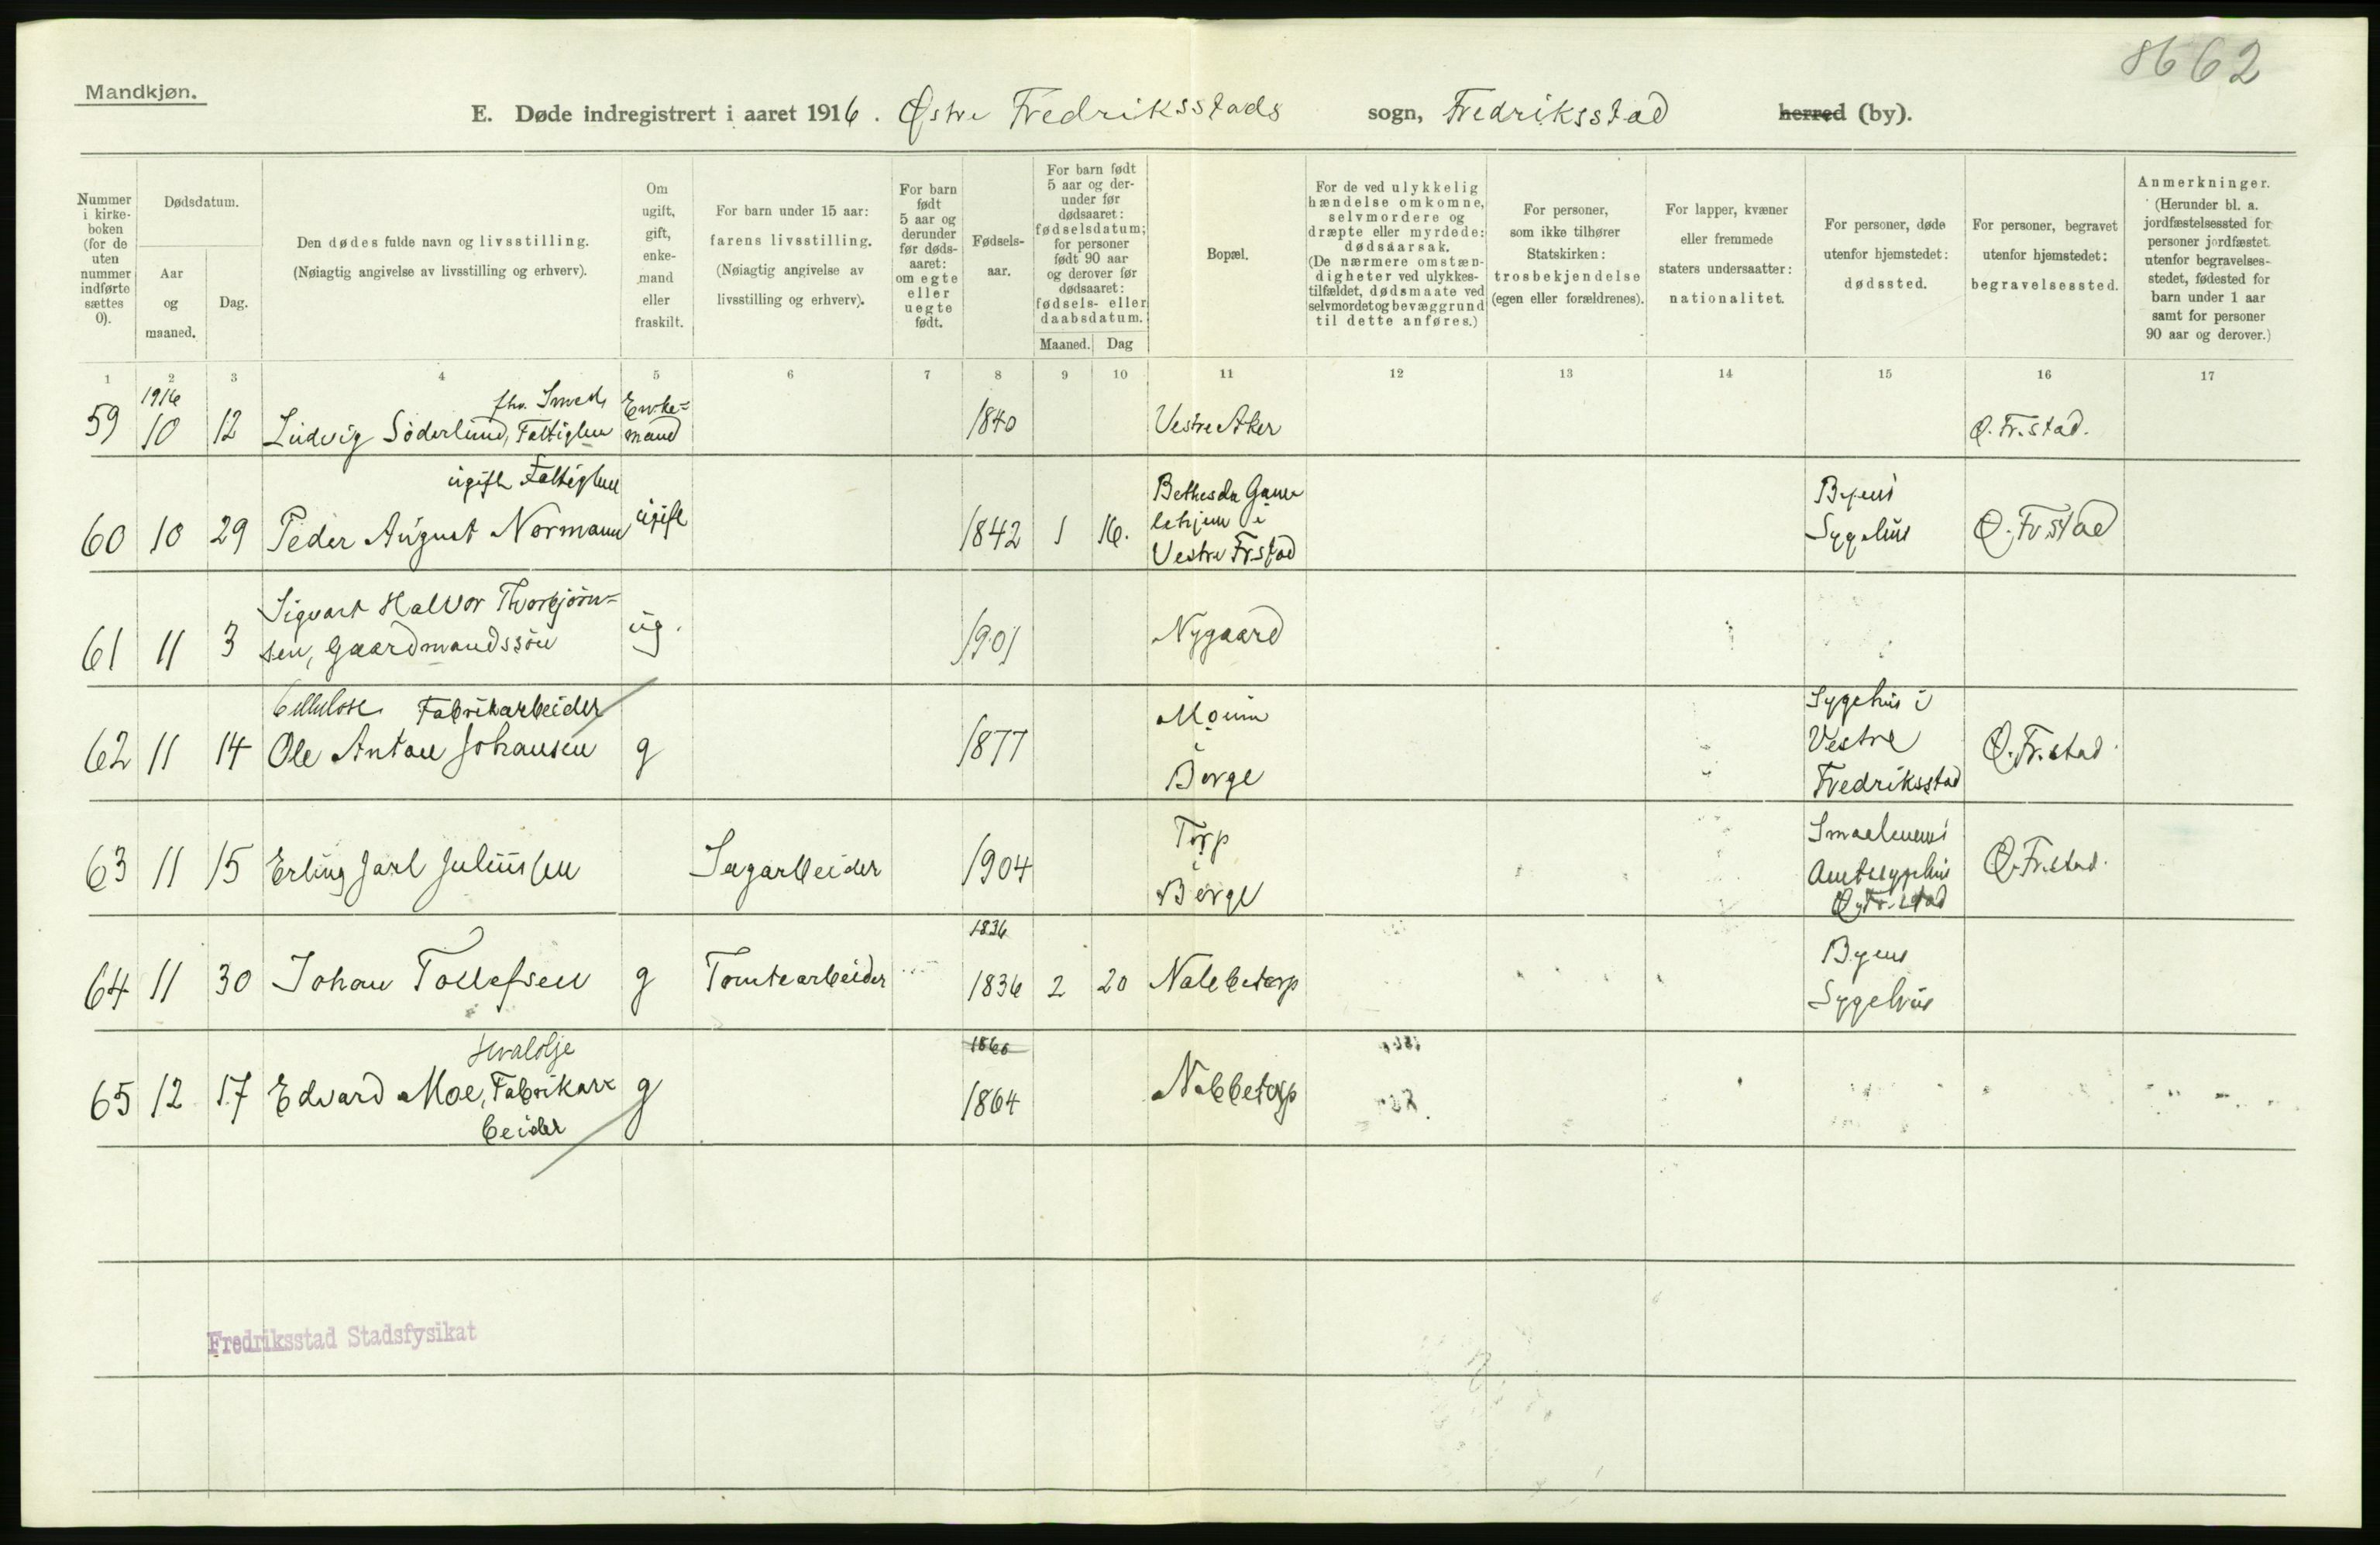 8662
Mandkjøn.
E. Døde indregistrert i aaret 1916. Østre Fredriksstads sogn, Fredriksstad herred (by).
Nummer i kirke-boken (for de uten nummer indførte sættes 0).
Dødsdatum.
Aar og maaned.
Dag.
Den dødes fulde navn og livsstilling.
(Nøiagtig angivelse av livsstilling og erhverv).
Om ugift, gift, enke-mand eller fraskilt.
For barn under 15 aar:
farens livsstilling.
(Nøiagtig angivelse av livsstilling og erhverv).
For barn født 5 aar og derunder før døds-aaret: om egte eller uegte født.
Fødsels-aar.
For barn født 5 aar og der-under før dødsaaret: fødselsdatum; for personer født 90 aar og derover før dødsaaret: fødsels- eller daabsdatum.
Maaned. Dag
Bopæl.
For de ved ulykkelig hændelse omkomne, selvmordere og dræpte eller myrdede: dødsaarsak.
(De nærmere omstæn-digheter ved ulykkes-tilfældet, dødsmaate ved selvmordet og bevæggrund til dette anføres.)
For personer, som ikke tilhører Statskirken: trosbekjendelse (egen eller forældrenes).
For lapper, kvæner eller fremmede staters undersaatter: nationalitet.
For personer, døde utenfor hjemstedet: dødssted.
For personer, begravet utenfor hjemstedet: begravelsessted.
Anmerkninger.
(Herunder bl. a. jordfæstelsessted for personer jordfæstet utenfor begravelses-stedet, fødested for barn under 1 aar samt for personer 90 aar og derover.)
1 2 3 4 5 6 7 8 9 10 11 12 13 14 15 16 17
1916
fhv. Smed,
59 10 12 Ludvig Söderlund, Fattiglem Enke=mand 1840 Vestre Aker Ø. Fr.stad.
ugift Fattiglem
60 10 29 Peder August Normann ugift 1842 1 16. Bethesda Gam-lehjem i Vestre Fr.stad Byens Sygehus Ø. Fr.stad
Sigvart Halvor Thorbjörn=
61 11 3 sen, Gaardmandssön ug. 1901 Nygaard
Cellulose Fabrikarbeider
62 11 14 Ole Anton Johansen g 1877 Moum i Borge Sygehus i Vestre Fredriksstad Ø. Fr.stad
63 11 15 Erling Jarl Juliussen Sagarbeider 1904 Torp i Borge Smaalenenes Amtssygehus Ø. Fr.stad Ø. Fr.stad.
1836
64 11 30 Johan Tollefsen g Tomtearbeider 1836 2 20 Nabbetorp Byens Sygehus
Hvalolje
1860
65 12 17 Edvard Moe, Fabrikar= g 1864 Nabbetorp
beider
Fredriksstad Stadsfysikat